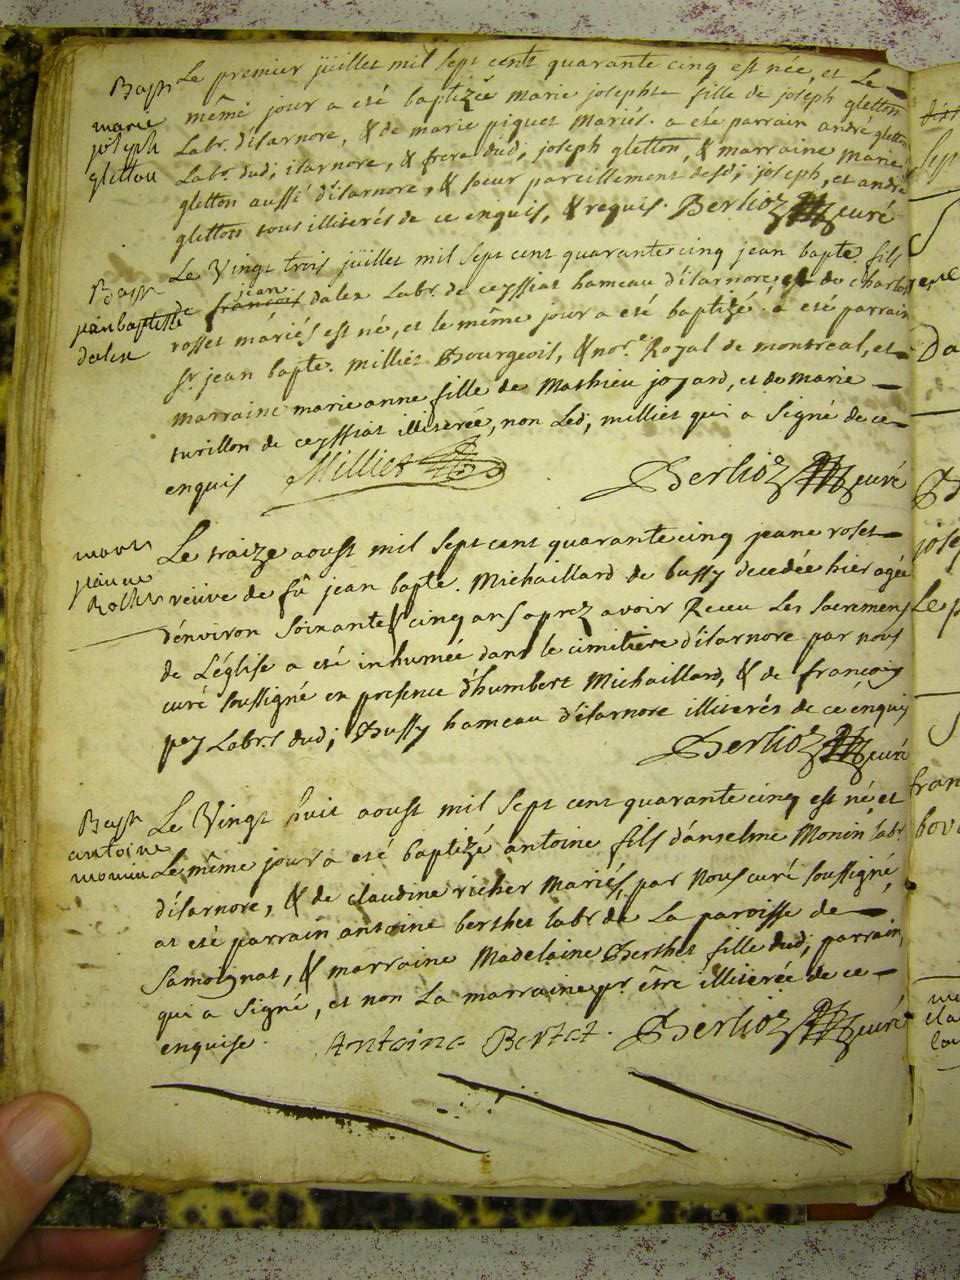 Bapt. Le premier juillet mil sept cent quarante cinq est née, et Le
même jour a eté baptizée marie josephte fille de joseph gletton
marie joseph gletton
Labr. d'isarnore, & de marie piquet mariés. a eté parrain andré gletton
Labr. dud; isarnore, & frere dud; joseph gletton, & marraine marie
gletton aussi d'isarnore, & soeur pareillement desd; joseph, et andré
gletton tous illiterés de ce enquis, & requis. Berlioz curé
Bapt.
jean baptiste
dalex
Le Vingt trois juillet mil sept cent quarante cinq jean bapte. fils
jean
de francois dalex Labr. de ceyssiat hameau d'isarnore; et de charlot
rosset mariés est né, et le même jour a eté baptizé. a eté parrain
Sr. jean bapte. milliet Bourgeois, & nore. Royal de montreal, et
marraine marie anne fille de Mathieu joyard, et de marie
turillon de ceyssiat illiterée, non Led; milliet qui a signé de ce
enquis Milliet Berlioz curé
mort
jeanne
Rosset
Le traize aoust mil sept cent quarante cinq jeane roset
veuve de fû jean bapte. Michaillard de bussy decedée hier agée
d'environ soixante & cinq ans aprez avoir Receu Les sacremens
de L'église a eté inhumée dans le cimitière d'isarnore par nous
curé soussigné en presence d'humbert Michaillard, & de françois
pey Labrs. dud; Bussy hameau d'isarnore illiterés de ce enquis
Berlioz curé
Bapt.
antoine
monin
Le Vingt huit aoust mil sept cent quarante cinq est né, et
Le même jour a eté baptizé antoine fils d'anselme Monin labr.
d'isarnore, & de claudine richer Mariés, par Nous curé soussigné,
at eté parrain antoine berthet labr. de La paroisse de
Samognat, & marraine Madelaine Berthet fille dud; parrain,
qui a signé, et non La marraine pr. être illiterée de ce
enquise. Antoine Bertet. Berlioz curé